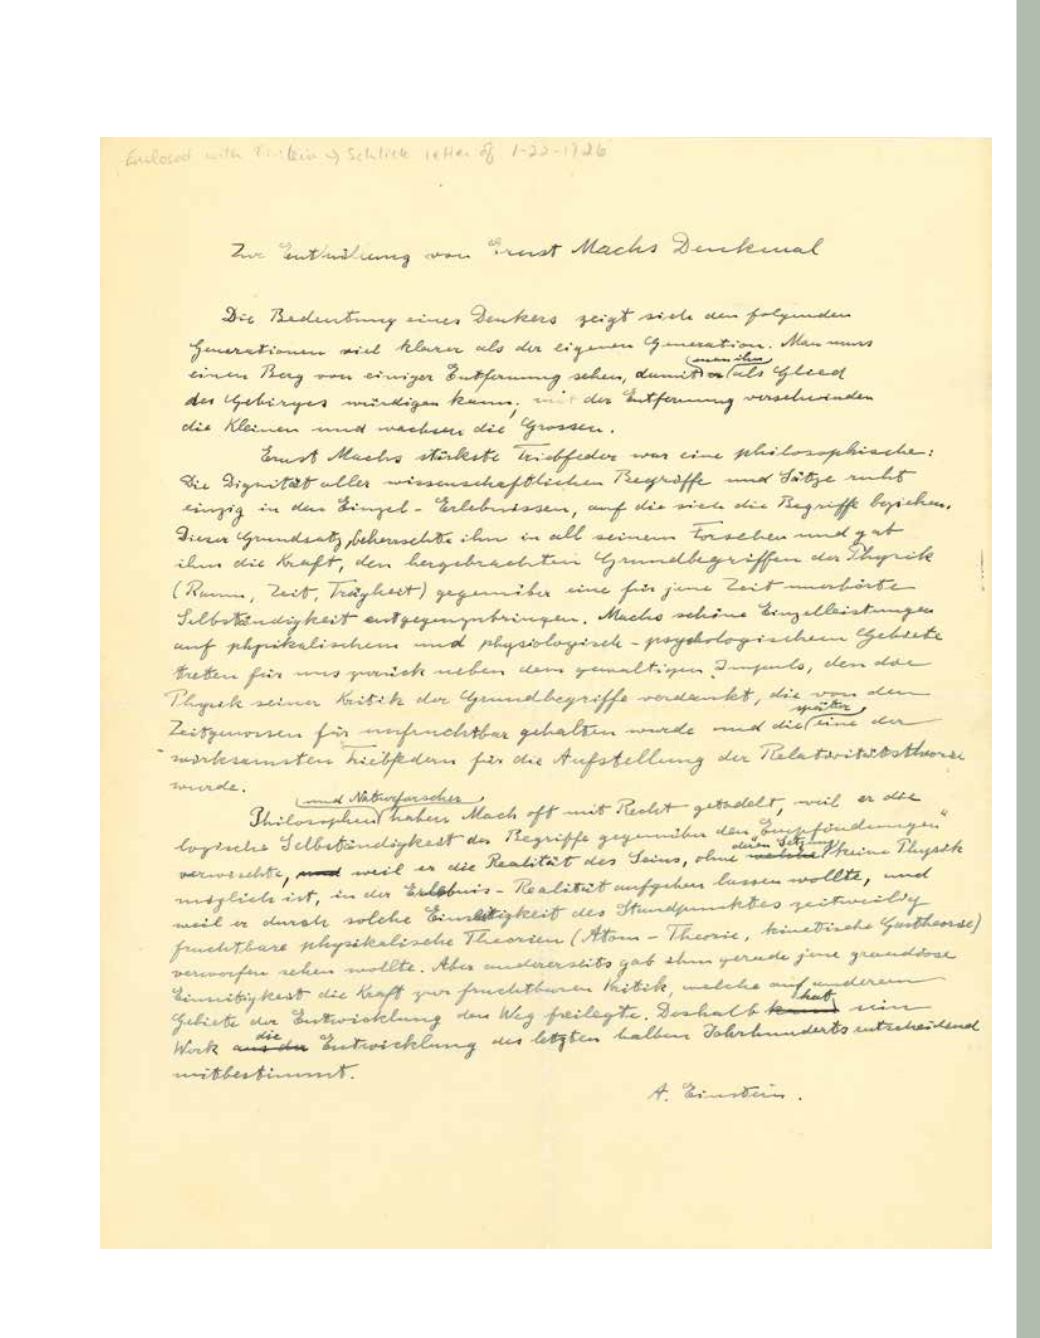 Enclosed with Einstein → Schlick letter of 1-22-1926
Zur Enthüllung von Ernst Machs Denkmal
Die Bedeutung eines Denkers zeigt sich den folgenden
Generationen viel klarer als der eigenen Generation. Man muss
einen Berg von einiger Entfernung sehen, damit man ihn als Glied
des Gebirges würdigen kann; mit der Entfernung verschwinden
die Kleinen und wachsen die Grossen.
Ernst Machs stärkste Triebfeder war eine philosophische:
Die Dignität aller wissenschaftlichen Begriffe und Sätze ruht
einzig in den Einzel-Erlebnissen, auf die sich die Begriffe beziehen.
Dieser Grundsatz beherrschte ihn in all seinem Forschen und gab
ihm die Kraft, den hergebrachten Grundbegriffen der Physik
(Raum, Zeit, Trägheit) gegenüber eine für jene Zeit unerhörte
Selbständigkeit entgegenzubringen. Machs schöne Einzelleistungen
auf physikalischem und physiologisch-psychologischem Gebiete
treten für uns zurück neben dem gewaltigen Impuls, den die
Physik seiner Kritik der Grundbegriffe verdankt, die von den
Zeitgenossen für unfruchtbar gehalten wurde und die später eine der
wirksamsten Triebfedern für die Aufstellung der Relativitätstheorie
wurde.
Philosophen und Naturforscher haben Mach oft mit Recht getadelt, weil er die
logische Selbständigkeit der Begriffe gegenüber den „Empfindungen"
verwischte, und weil er die Realität des Seins, ohne welche deren Setzung keine Physik
möglich ist, in der Erlebnis-Realität aufgehen lassen wollte, und
weil er durch solche Einseitigkeit des Standpunktes zeitweilig
fruchtbare physikalische Theorien (Atom-Theorie, kinetische Gastheorie)
verworfen sehen wollte. Aber andererseits gab ihm gerade jene grandiose
Einseitigkeit die Kraft zur fruchtbaren Kritik, welche auf anderem
Gebiete der Entwicklung den Weg freilegte. Deshalb hat sein
Werk die Entwicklung des letzten halben Jahrhunderts entscheidend
mitbestimmt.
A. Einstein.